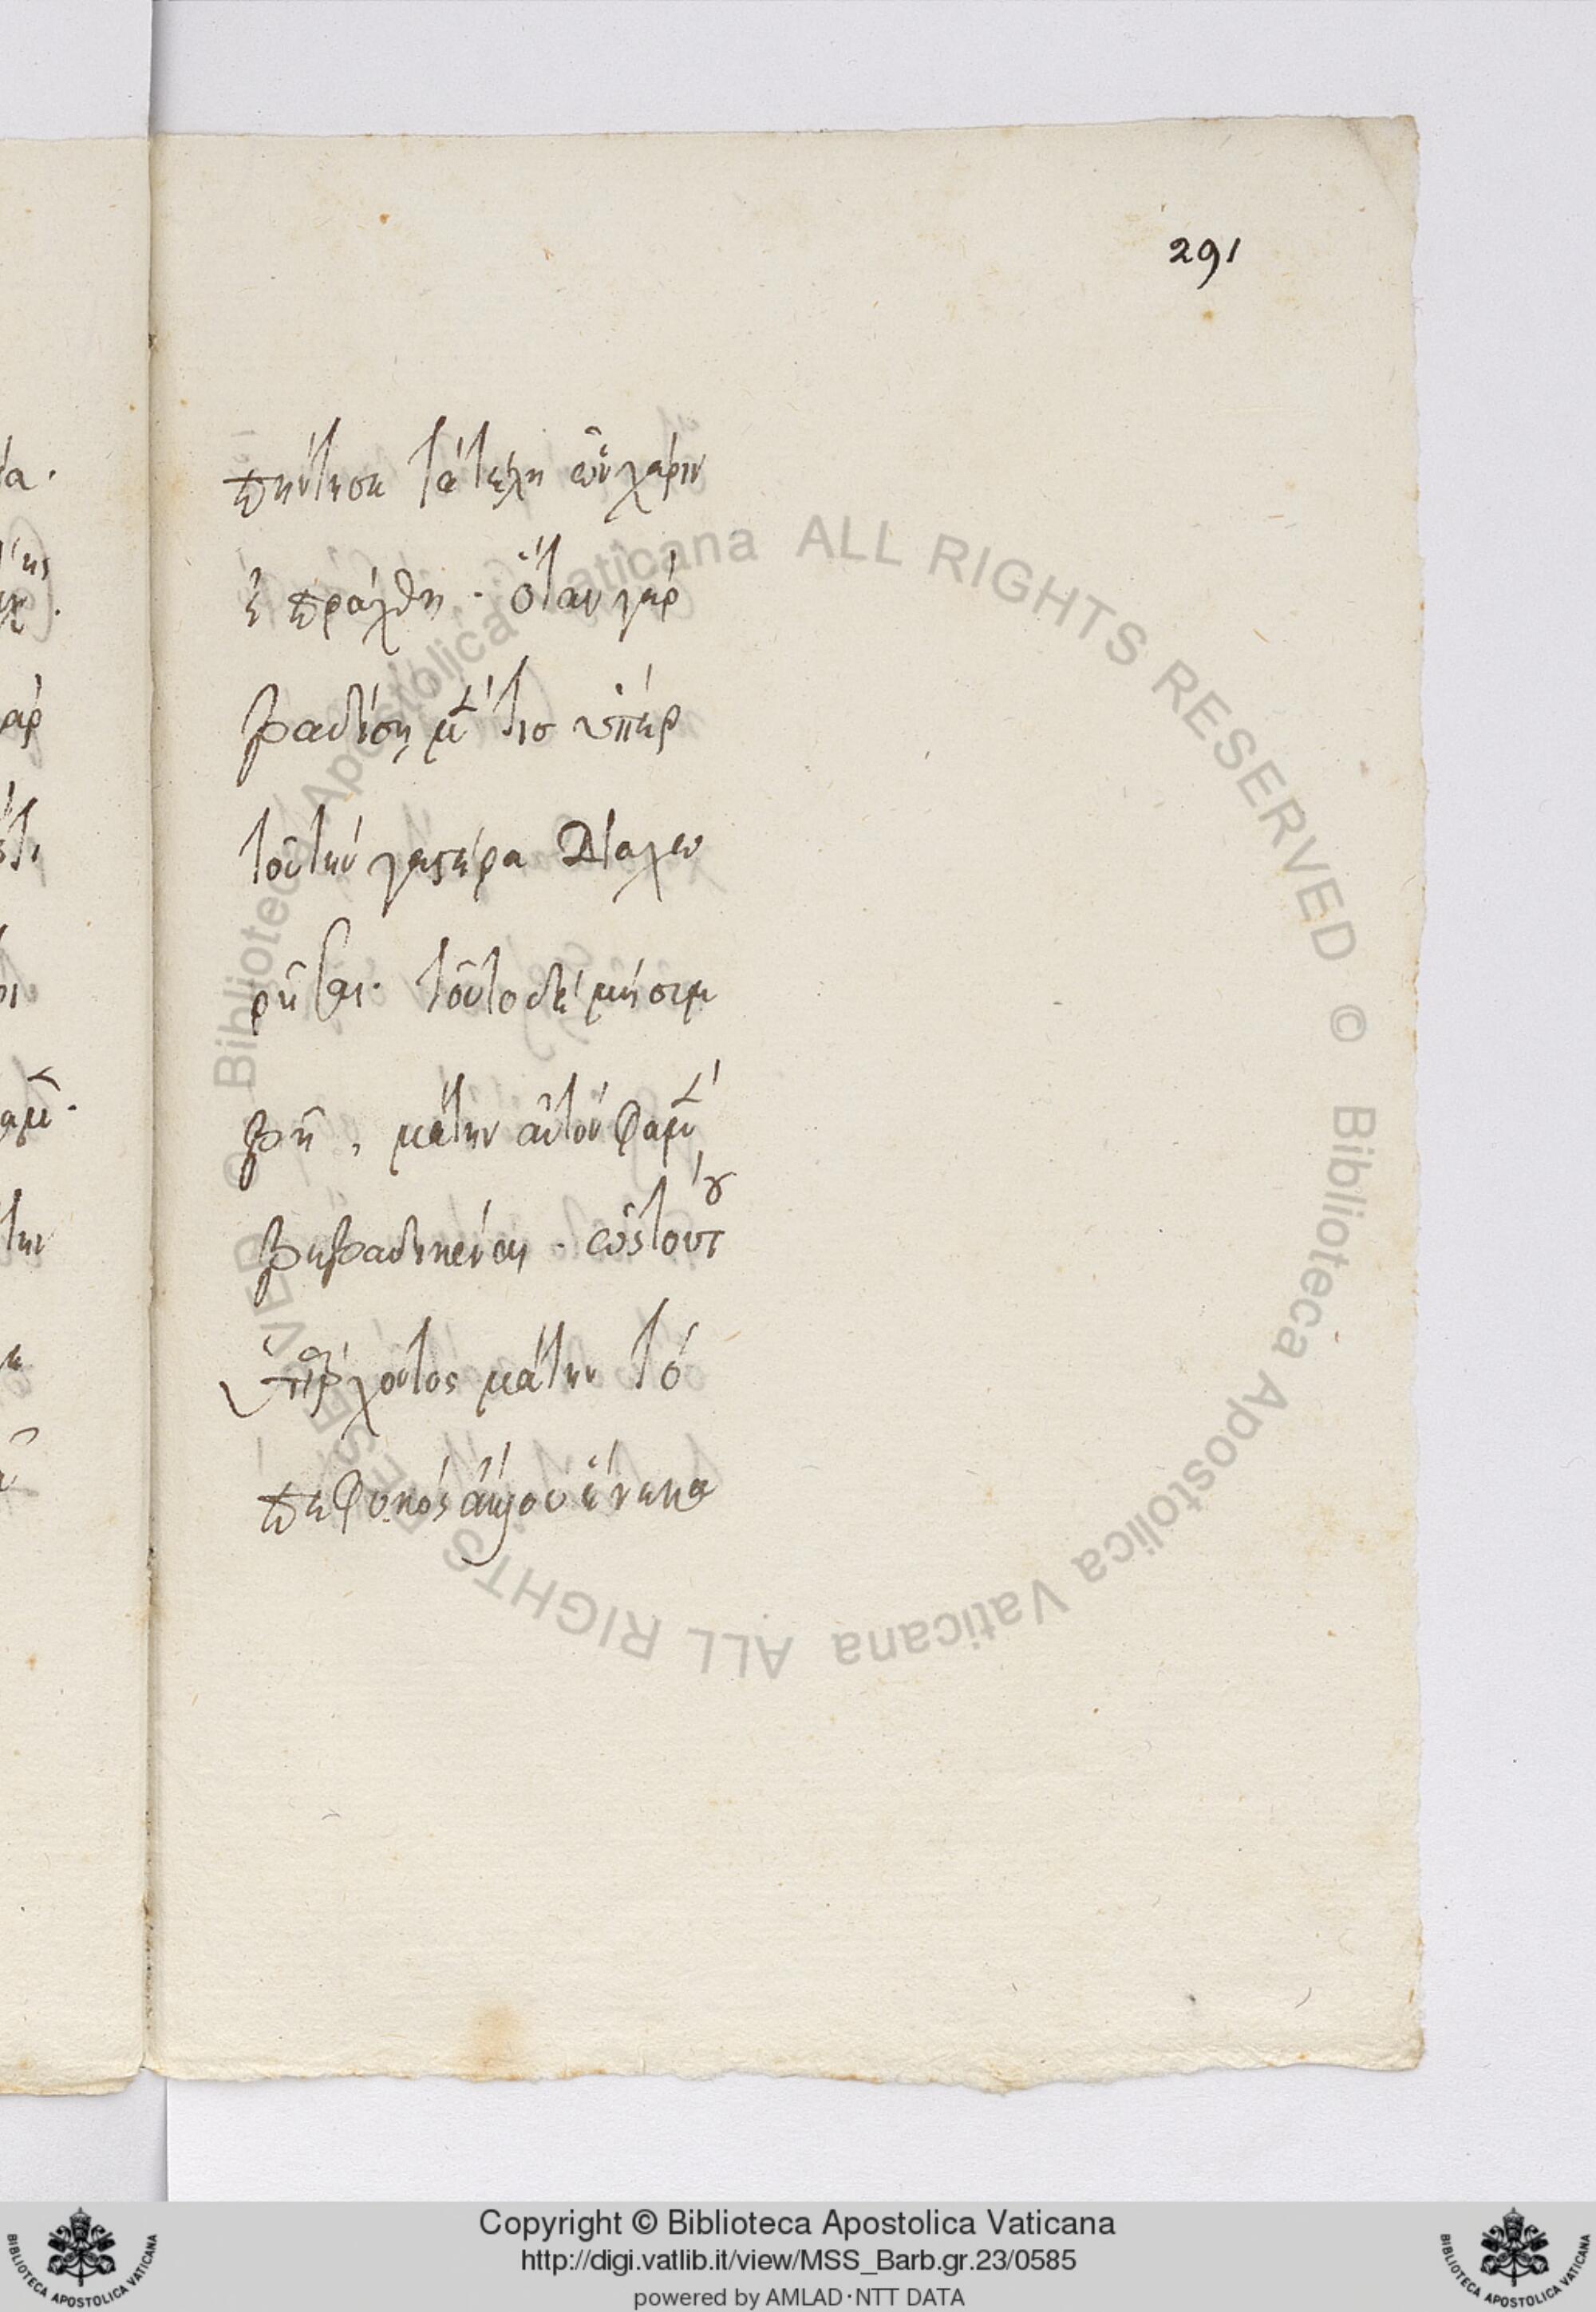 291
πήντησε τὰ τέλη ὧν χάριν
ἐπράχθη. ὅταν γὰρ
βαδίσῃ μέν τις ὑπὲρ
τοῦ τὴν γαστέρα διαχω
ρῆσαι. τοῦτο δὲ μὴ συμ
βῆ, μάτην αὐτόν φαμεν
βεβαδικέναι. ὡς τούτου
ὑπάρχοντος μάτην τὸ
πεφυκὸς ἄλλου ἕνεκα
© Biblioteca Apostolica Vaticana ALL RIGHTS RESERVED © Biblioteca Apostolica Vaticana ALL RIGHTS RESERVED
Copyright © Biblioteca Apostolica Vaticana
http://digi.vatlib.it/view/MSS_Barb.gr.23/0585
powered by AMLAD·NTT DATA
BIBLIOTECA APOSTOLICA VATICANA
BIBLIOTECA APOSTOLICA VATICANA